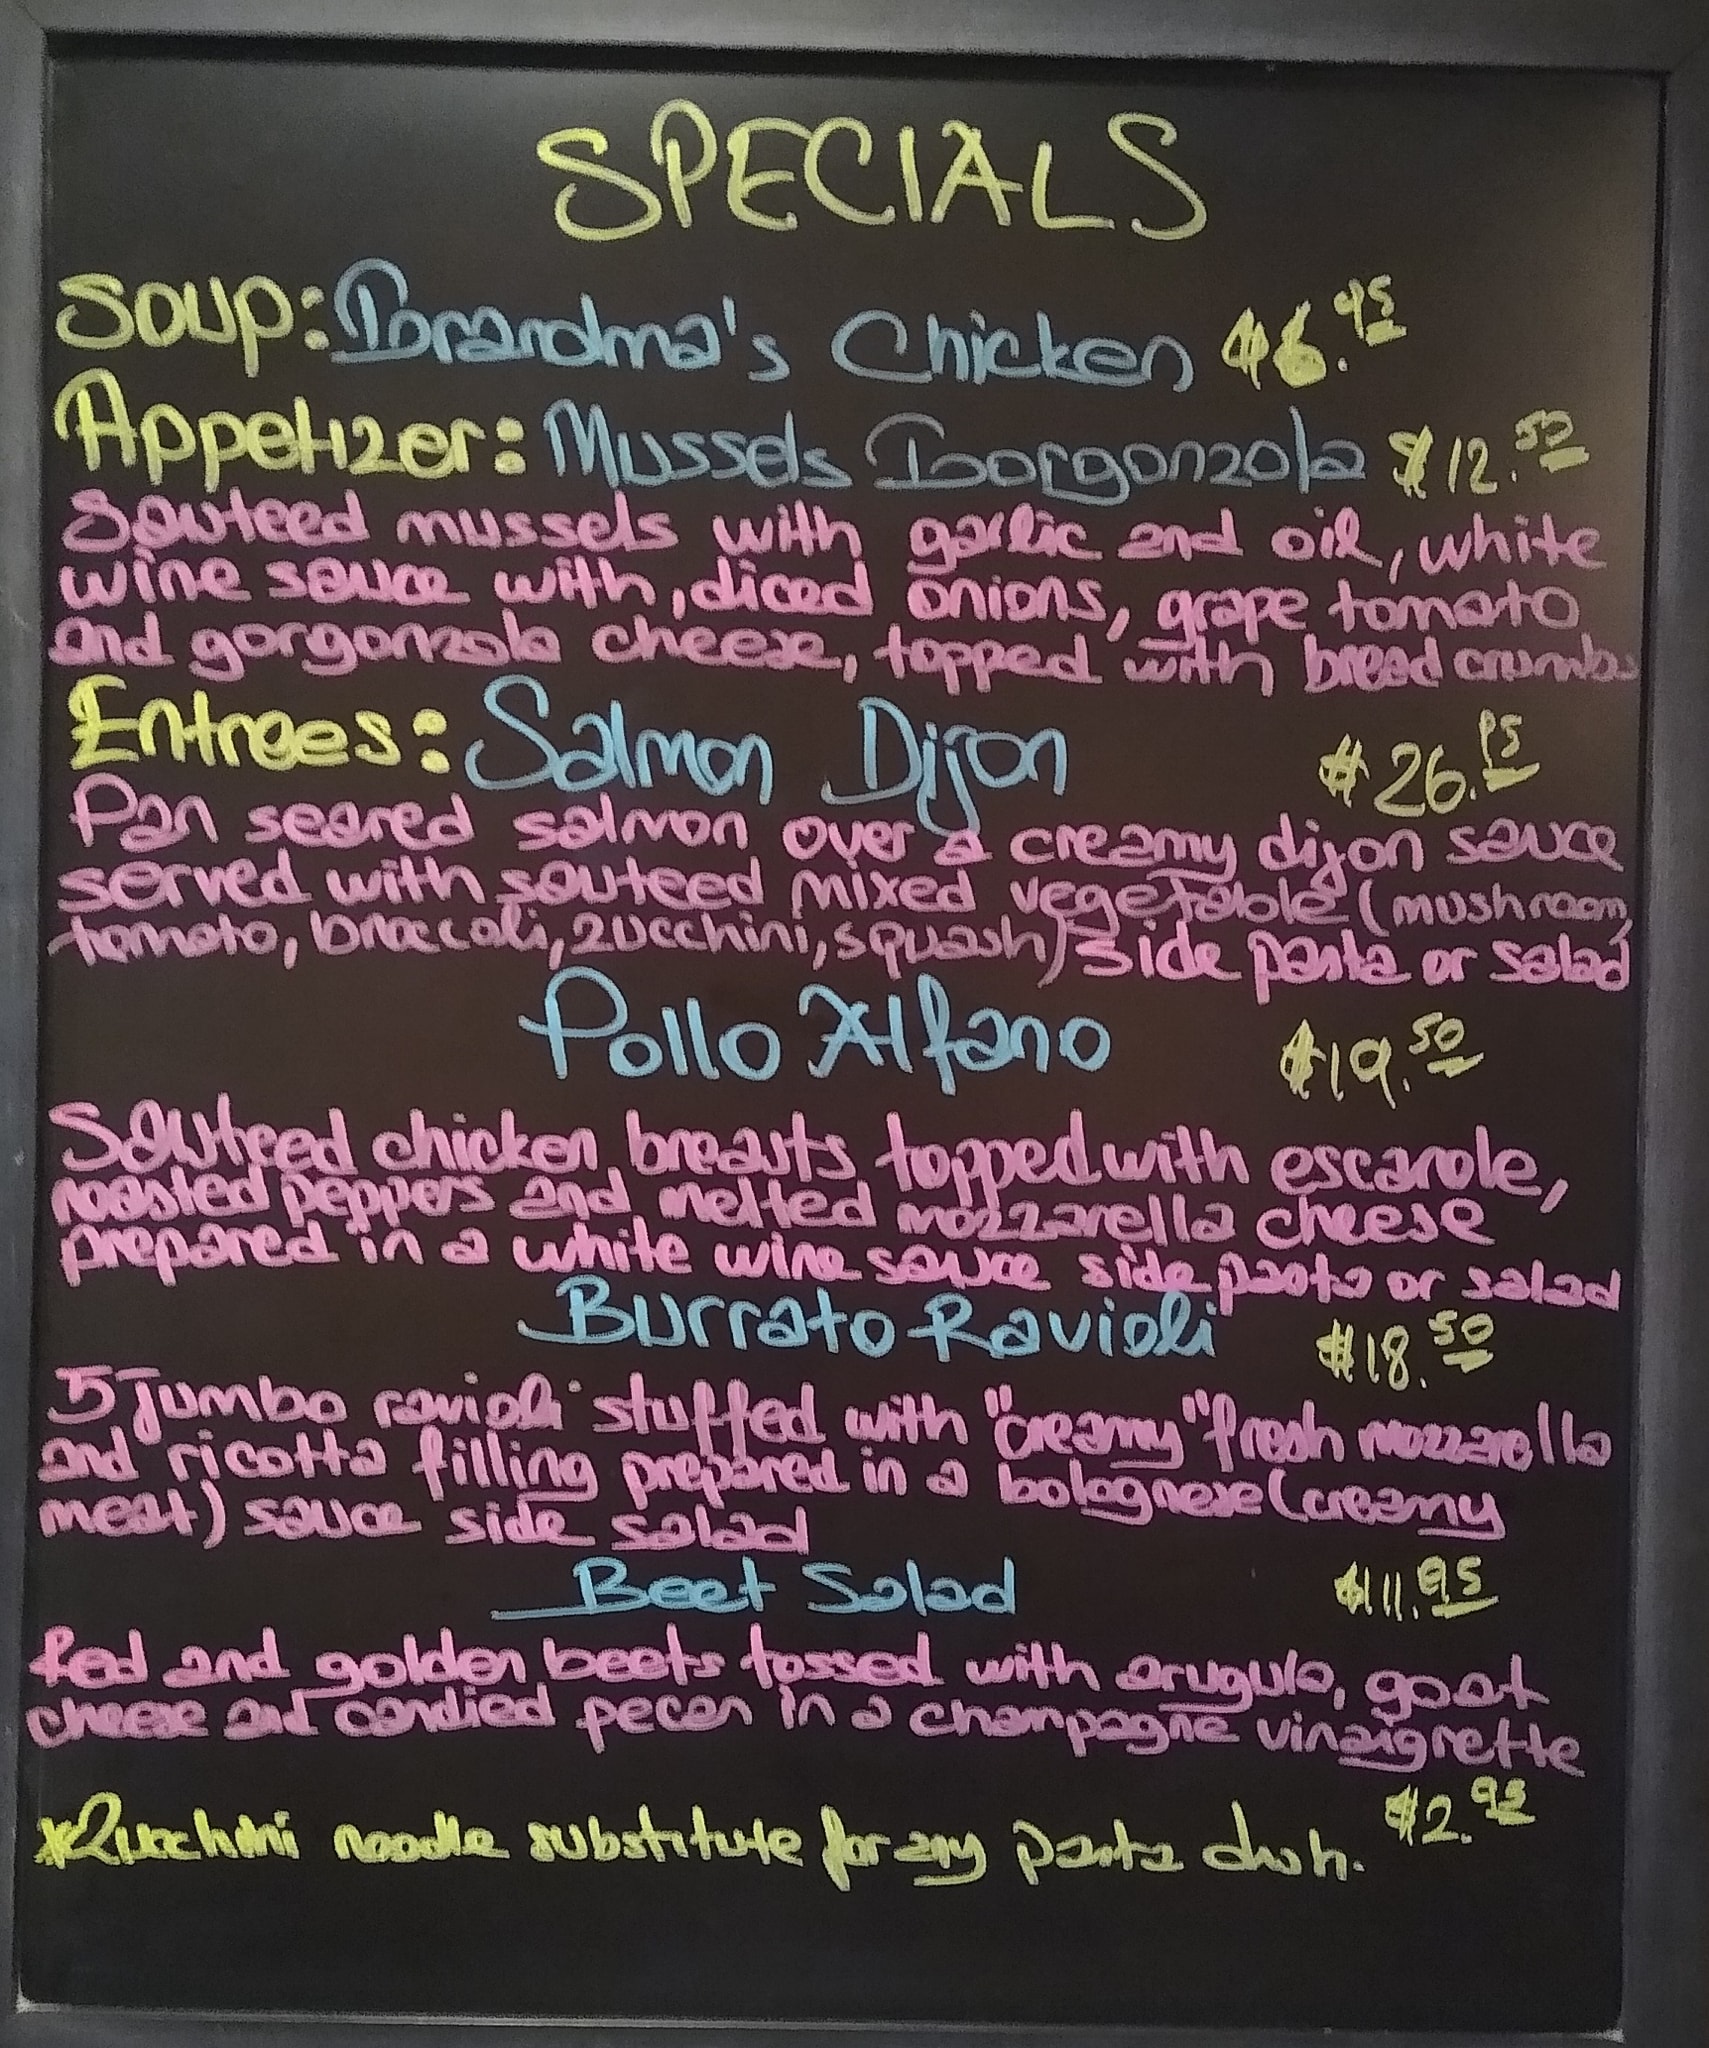 SPECIALS
Soup: Grandma's Chicken $6.95
Appetizer: Mussels Gorgonzola $12.50
Sauteed mussels with garlic and oil, white
wine sauce with, diced onions, grape tomato
and gorgonzola cheese, topped with bread crumbs
Entrees: Salmon Dijon $26.95
Pan seared salmon over a creamy dijon sauce
served with sauteed mixed vegetable (mushroom,
tomato, broccoli, zucchini, squash) side pasta or salad
Pollo Alfano $19.50
Sauteed chicken breasts topped with escarole,
roasted peppers and melted mozzarella cheese
prepared in a white wine sauce side pasta or salad
Burrato Ravioli $18.50
5 Jumbo ravioli stuffed with "creamy" fresh mozzarella
and ricotta filling prepared in a bolognese (creamy
meat) sauce side salad
Beet Salad $11.95
Red and golden beets tossed with arugula, goat
cheese and candied pecan in a champagne vinaigrette
*Zucchini noodle substitute for any pasta dish. $2.95